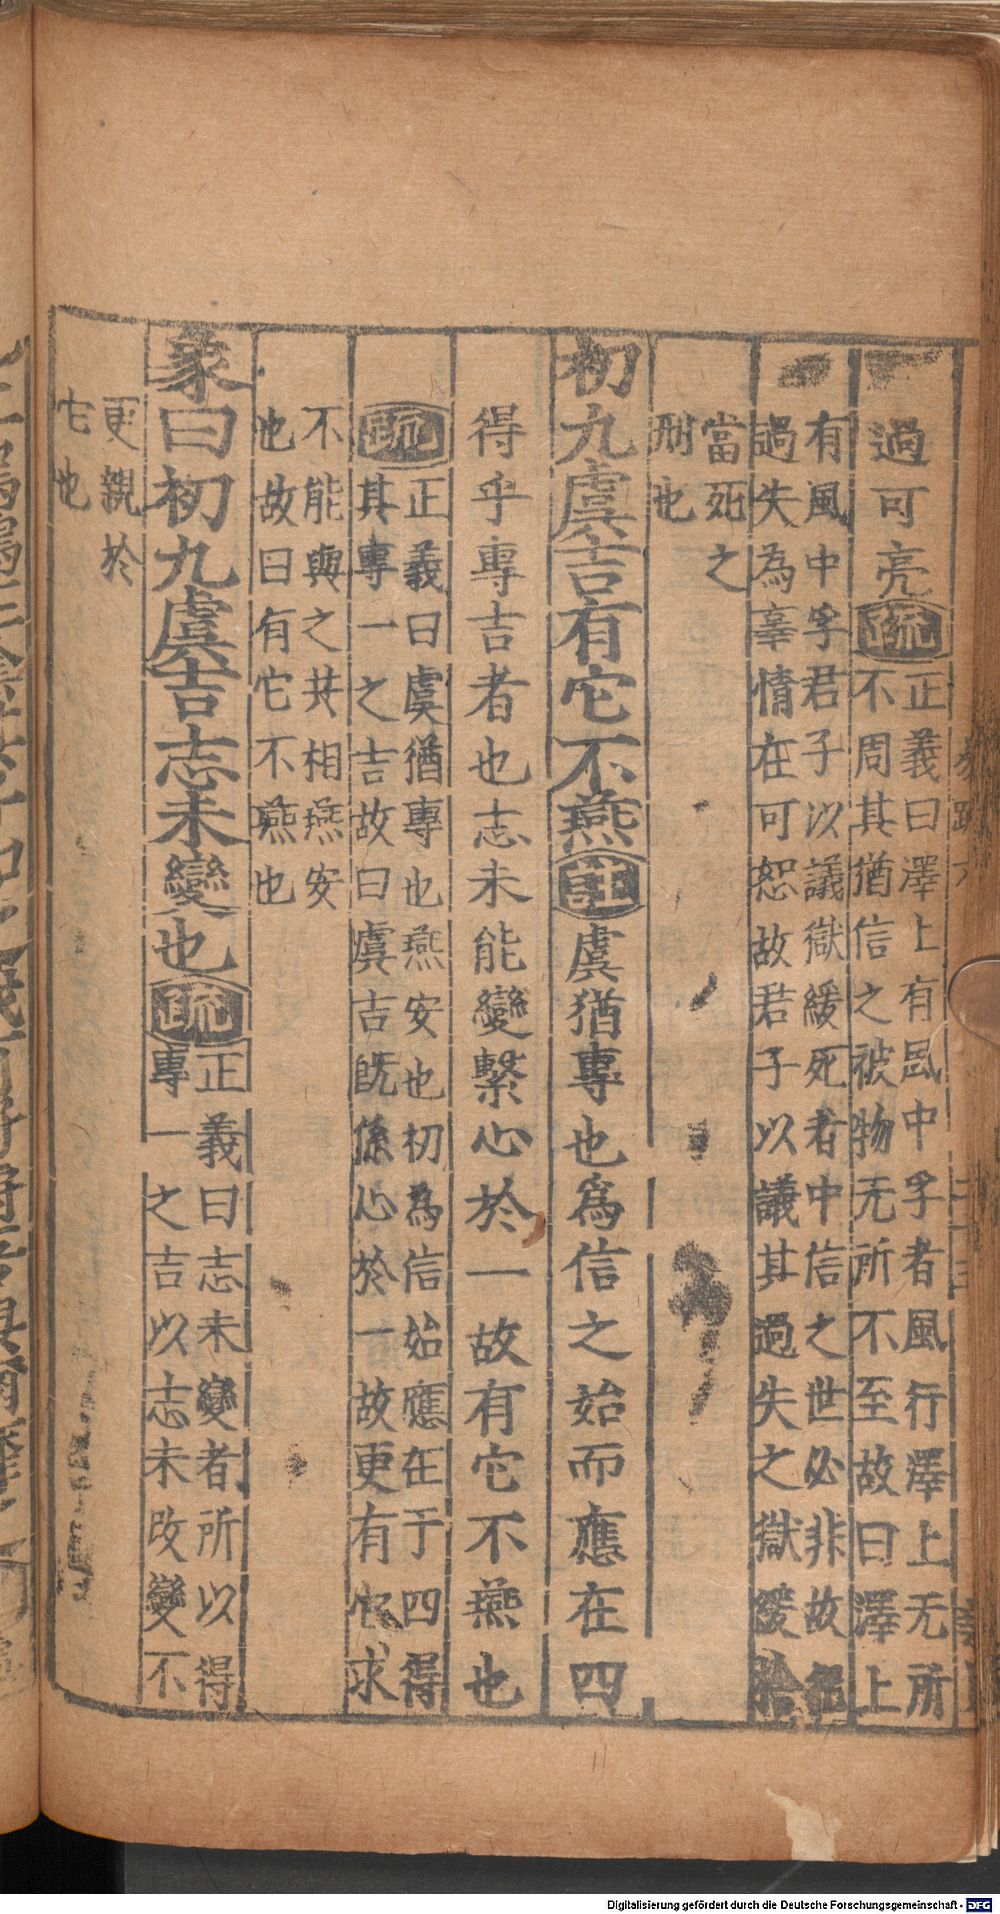 過可亮疏正義曰澤上有風中孚者風行澤上无所
不周其猶信之被物无所不至故曰澤上
有風中孚君子以議獄緩死者中信之世必非故
過失為辜情在可恕故君子以議其過失之獄緩
當死之
刑也
初九虞吉有它不燕註虞猶專也為信之始而應在四
得乎專吉者也志未能變繫心於一故有它不燕也
疏正義曰虞猶專也燕安也初為信始應在于四得
其專一之吉故曰虞吉既係心於一故更有它求
不能與之共相燕安
也故曰有它不燕也
象曰初九虞吉志未變也疏正義曰志未變者所以得
專一之吉以志未改變不
更親於
它也
Digitalisierung gefördert durch die Deutsche Forschungsgemeinschaft - DFG